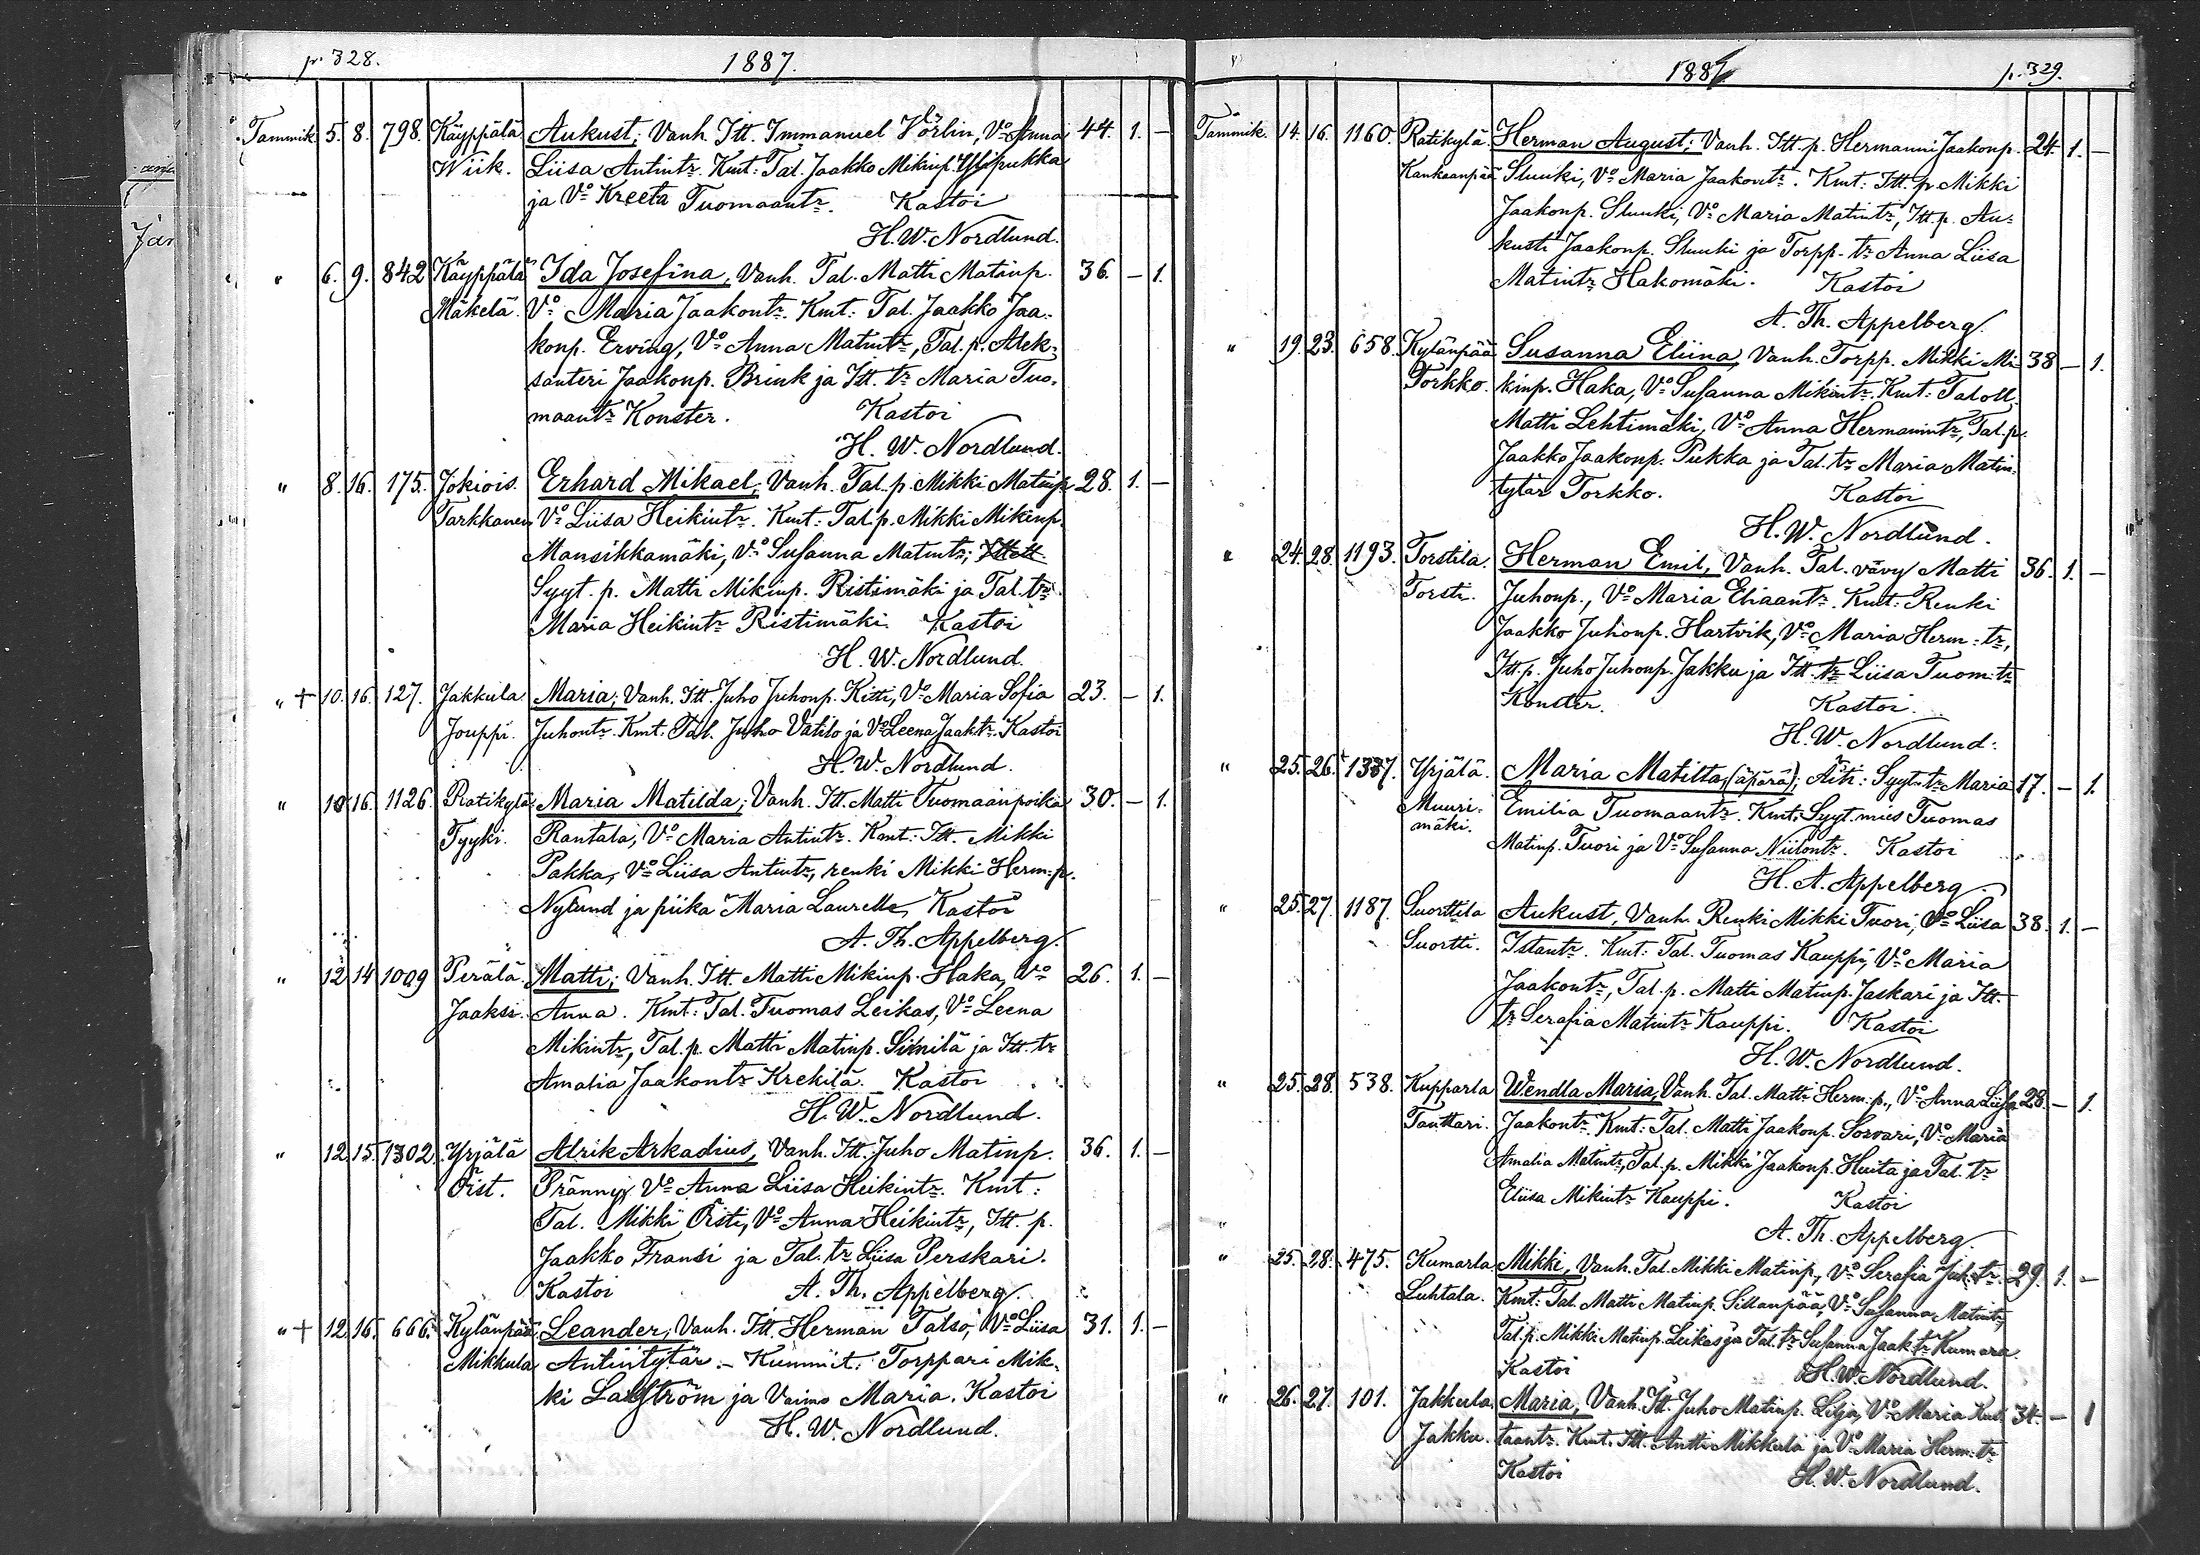 p. 328.
1887.
Tammik. 5. 8. 798. Käyppälä Aukust; Vanh. Itt. Immanuel Vörlin, Vo Anna 44. 1. —
Wiik. Liisa Antintr. Kmt: Tal. Jaakko Mikinp. Ylipukka
ja Vo Kreeta Tuomaantr. Kastoi
H. W. Nordlund.
" 6. 9. 842 Käyppälä Ida Josefina, Vanh. Tal. Matti Matinp. 36. — 1.
Mäkelä. Vo Maria Jaakontr. Kmt: Tal. Jaakko Jaa-
konp. Erving, Vo Anna Matintr, Tal. p. Alek-
santeri Jaakonp. Brink ja Itt. tr Maria Tuo-
maantr Konster. Kastoi
H. W. Nordlund.
" 8. 16. 175. Jokiois. Erhard Mikael, Vanh. Tal. p. Mikki Matinp. 28. 1. —
Tarkkanen Vo Liisa Heikintr. Kmt: Tal. p. Mikki Mikinp.
Mansikkamäki, Vo Susanna Matintr;
Syyt. p. Matti Mikinp. Ristimäki ja Tal. tr
Maria Heikintr Ristimäki. Kastoi
H. W. Nordlund.
" + 10. 16. 127. Jakkula Maria; Vanh. Itt. Juho Juhonp. Kitti, Vo Maria Sofia 23. — 1.
Jouppi. Juhontr. Kmt: Tal. Juho Vatilo ja Vo Leena Jaaktr. Kastoi
H. W. Nordlund.
" 10 16. 1126. Ratikylä Maria Matilda; Vanh. Itt. Matti Tuomaanpoika 30. — 1.
Tyyki. Rantala, Vo Maria Antintr. Kmt: Itt. Mikki
Pakka, Vo Liisa Antintr, renki Mikki Herm: p.
Nylund ja piika Maria Laurell, Kastoi
A. Th. Appelberg.
" 12 14 1009 Perälä Matti; Vanh. Itt. Matti Mikinp. Haka, Vo 26. 1. —
Jaaksi. Anna. Kmt: Tal. Tuomas Leikas, Vo Leena
Mikintr, Tal. p. Matti Matinp. Sirnilä ja Itt. tr
Amalia Jaakontr Krekilä. Kastoi
H. W. Nordlund.
" 12. 15. 1302. Yrjälä Alrik Arkadius, Vanh. Itt. Juho Matinp. 36. 1. —
Örst. Pränny, Vo Anna Liisa Heikintr. Kmt:
Tal. Mikki Örsti, Vo Anna Heikintr, Itt. p.
Jaakko Fransi ja Tal. tr Liisa Perskari.
Kastoi A. Th. Appelberg.
" + 12. 16. 666. Kylänpää Leander, Vanh. Itt. Herman Talso, Vo Liisa 31. 1. —
Mikkula Antintytär. – Kummit: Torppari Mik-
ki Lagström ja Vaimo Maria. Kastoi
H. W. Nordlund.
1887 p. 329.
Tammik. 14. 16. 1160. Ratikylä Herman August; Vanh. Itt. p. Hermanni Jaakonp. 24. 1. —
Kankaanpää Sluuki, Vo Maria Jaakontr. Kmt: Itt. p. Mikki
Jaakonp. Sluuki, Vo Maria Matintr, Itt. p. Au-
kusti Jaakonp. Sluuki ja Torpp. tr Anna Liisa
Matintr Hakomäki. Kastoi
A. Th. Appelberg.
" 19. 23. 658. Kylänpää Susanna Eliina, Vanh. Torpp. Mikki Mi- 38 — 1.
Torkko. kinp. Haka, Vo Susanna Mikintr. Kmt: Taloll.
Matti Lehtimäki, Vo Anna Hermannintr, Tal. p.
Jaakko Jaakonp. Pukka ja Tal. tr Maria Matin-
tytär Torkko. Kastoi
H. W. Nordlund.
" 24. 28. 1193. Torstila. Herman Emil, Vanh. Tal. vävy Matti 36. 1. —
Torsti. Juhonp., Vo Maria Eliaantr. Kmt: Renki
Jaakko Juhonp. Hartvik, Vo Maria Herm: tr,
Itt. p. Juho Juhonp. Jakku ja Itt. tr Liisa Tuom: tr
Konster. Kastoi.
H. W. Nordlund.
" 25. 26. 1337. Yrjälä. Maria Matilta, (äpärä); Äiti: Syyt. tr Maria 17. — 1.
Muuri- Emilia Tuomaantr. Kmt: Syyt. mies Tuomas
mäki. Matinp. Tuori ja Vo Susanna Niilontr. Kastoi
H. A. Appelberg.
" 25. 27. 1187. Suorttila Aukust, Vanh. Renki Mikki Tuori, Vo Liisa 38. 1. —
Suortti. Istantr. Kmt: Tal. Tuomas Kauppi, Vo Maria
Jaakontr, Tal. p. Matti Matinp. Jaskari ja Itt.
tr Serafia Matintr Kauppi. Kastoi
H. W. Nordlund.
" 25. 28. 538. Kupparla Wendla Maria, Vanh. Tal. Matti Herm: p., Vo Anna Liisa 28. — 1.
Tanttari. Jaakontr. Kmt: Tal. Matti Jaakonp. Sorvari, Vo Maria
Amalia Matintr, Tal. p. Mikki Jaakonp. Huita ja Tal. tr
Eliisa Mikintr Kauppi. Kastoi
" A. Th. Appelberg.
" 25. 28. 475. Kumarla Mikki, Vanh. Tal. Mikki Matinp, Vo Serafia Juh: tr. 29. 1. —
Luhtala. Kmt: Tal. Matti Matinp. Sillanpää, Vo Susanna Matintr,
Tal. p. Mikki Matinp. Leikas ja Tal. tr Susanna Jaak: tr Kumara.
Kastoi H. W. Nordlund.
" 26. 27. 101. Jakkula. Maria, Vanh. Itt. Juho Matinp. Lilja, Vo Maria Kus- 34. — 1
Jakku. taantr. Kmt: Itt. Antti Mikkula ja Vo Maria Herm: tr
Kastoi H. W. Nordlund.